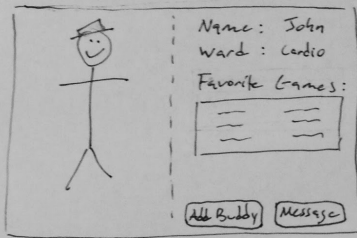 Name: John
Ward: Cardio
Favorite Games:
Add Buddy Message